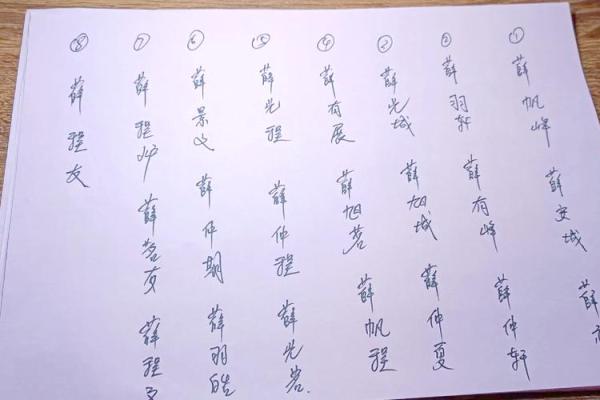 ①
薛帆峰
薛安城
薛
②
薛羽轩
薛有峰
薛仲轩
③
薛光城
薛旭城
薛仲夏
④
薛有展
薛旭茗
薛帆程
⑤
薛光程
薛仲程
薛光茗.
⑥
薛景文
薛仲期
薛羽皓
⑦
薛程
薛茗友
薛程文
⑧
薛程友